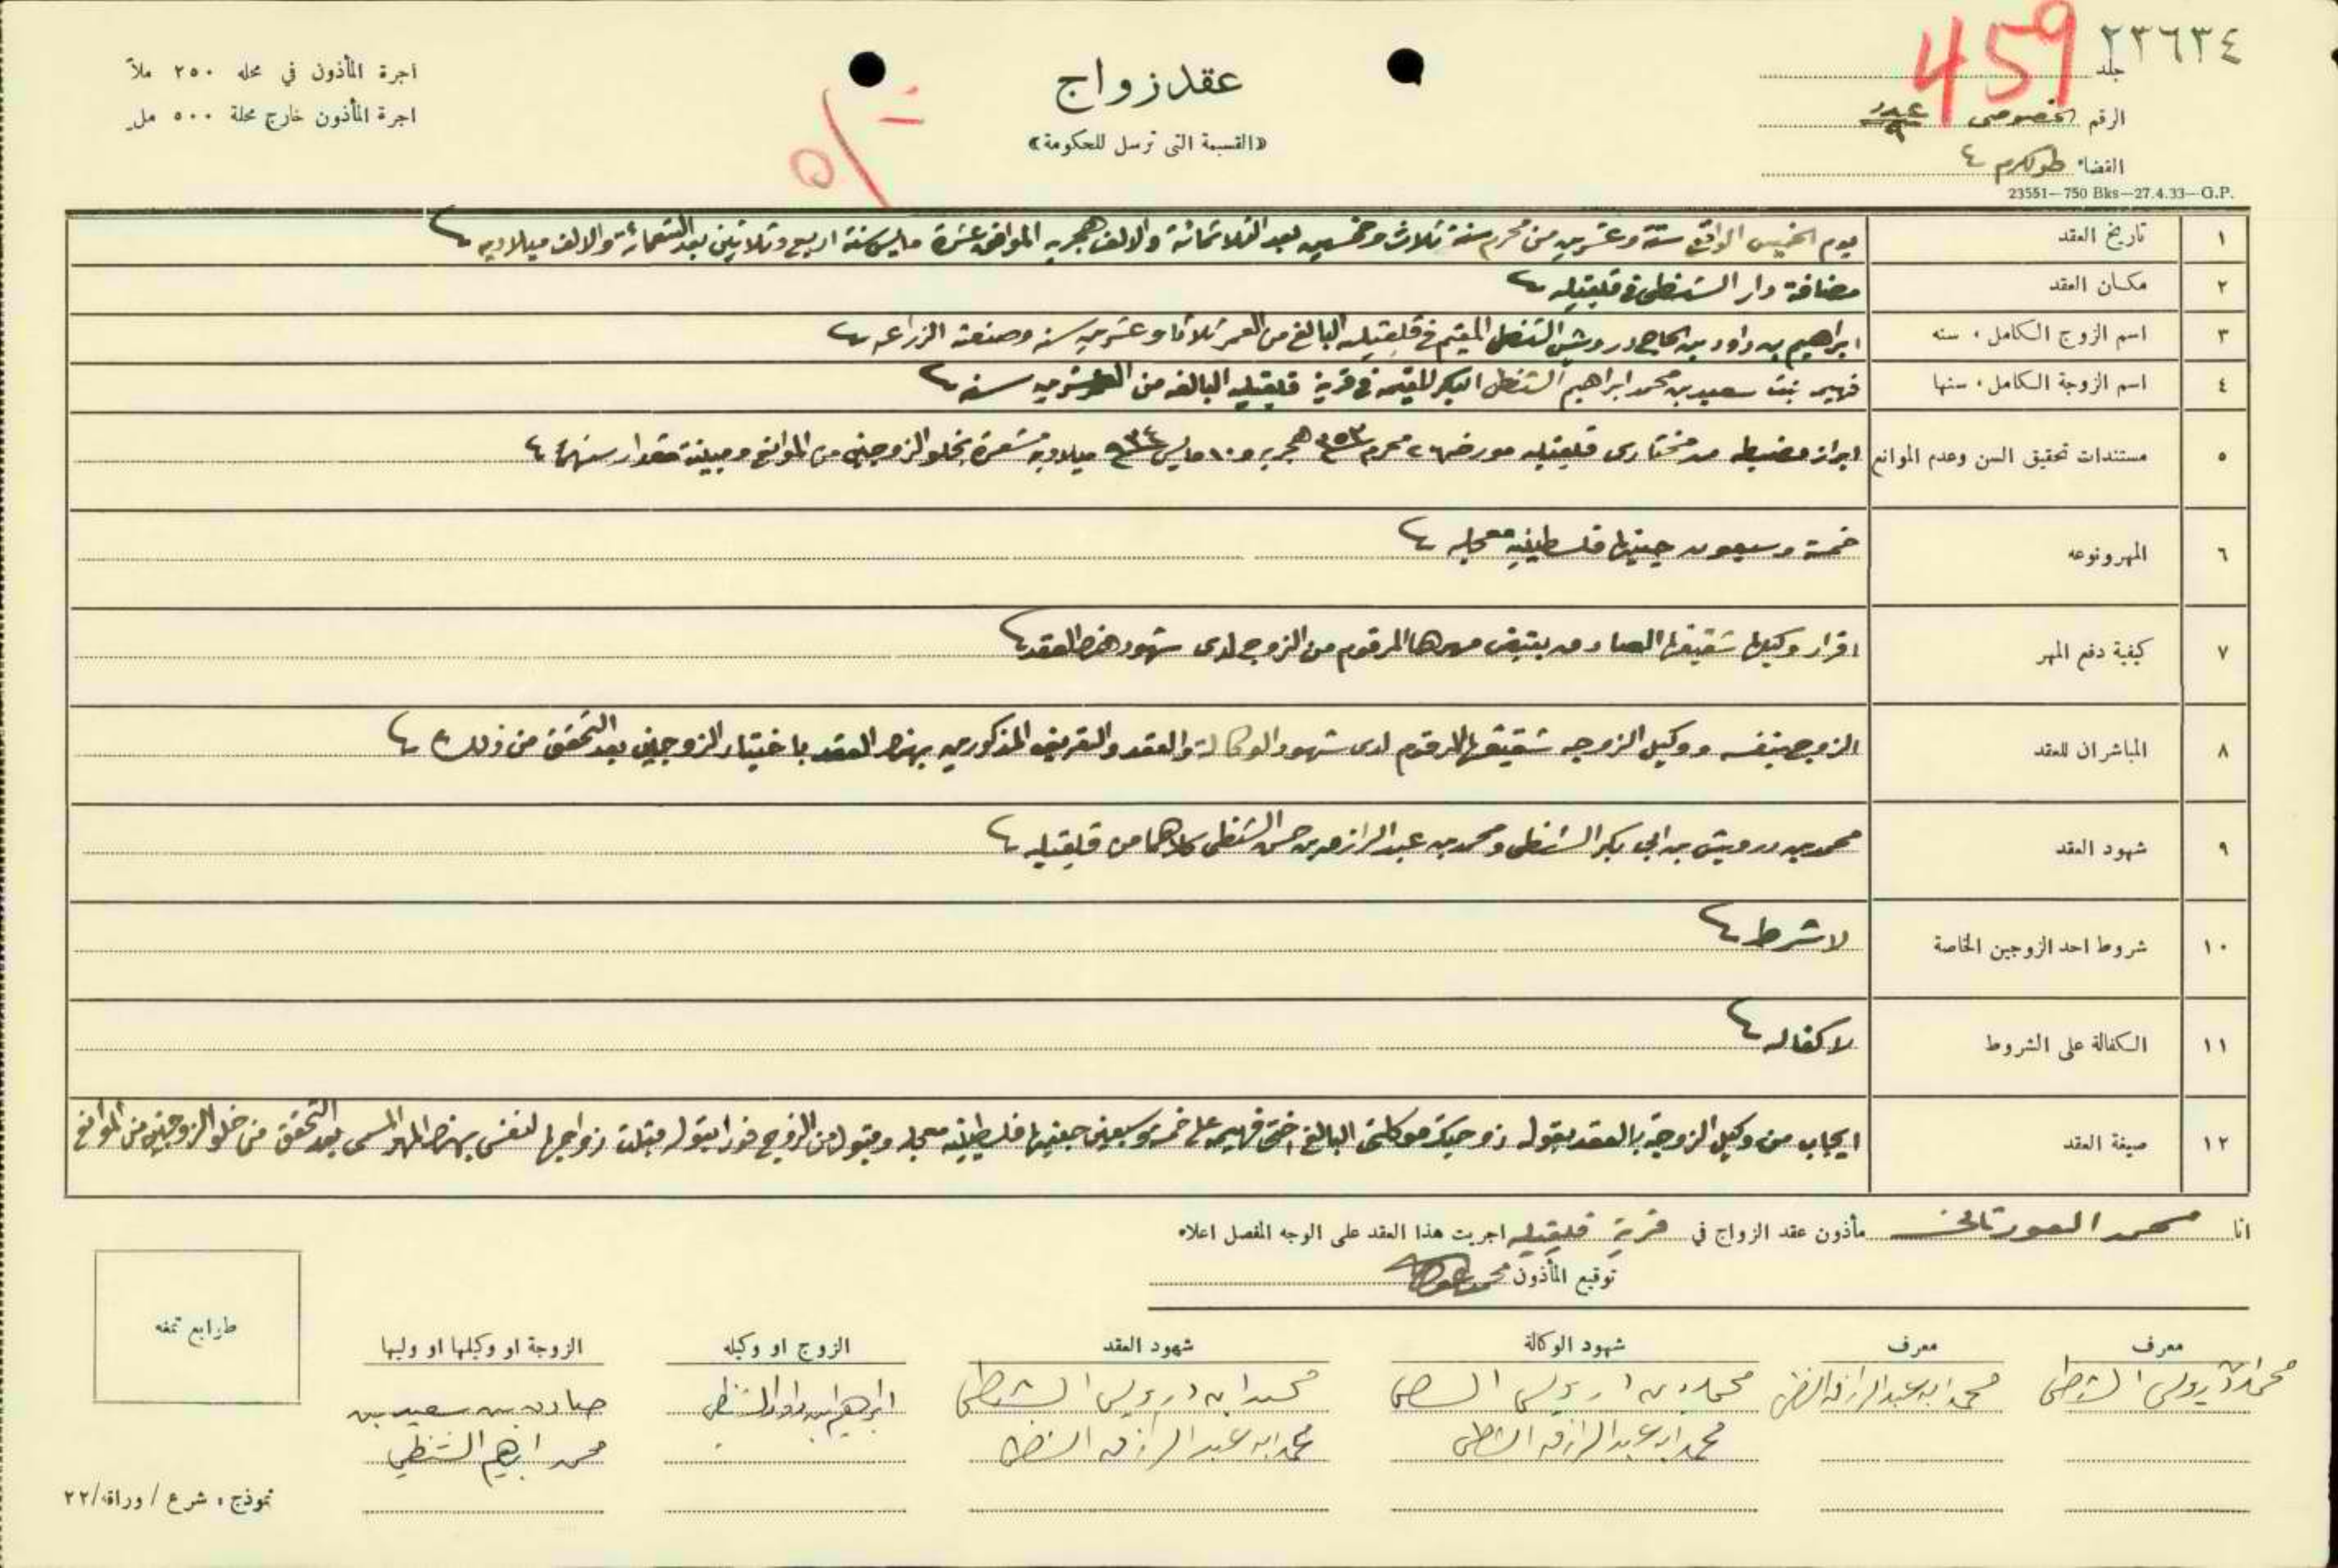 ٢٣٦٣٤
459
جلد
الرقم الخصوصي عدد ٩
القضاء طولكرم
23551—750 Bks—27.4.33—G.P.
عقد زواج
«القسيمة التى ترسل للحكومة»
اجرة المأذون في محله ٢٥٠ ملاً
اجرة المأذون خارج محلة ٥٠٠ مل
١ تاريخ العقد يوم الخميس الواقع ستة وعشرين من محرم سنة ثلاث وخمسين بعد الثلاثمائة والالف هجريه الموافق عشرة مايس سنة اربع وثلاثين بعد التسعمائة والالف ميلاديه
٢ مكان العقد مضافة دار الشنطي في قلقيليه
٣ اسم الزوج الكامل ، سنه ابراهيم بن داود بن الحاج درويش الشنطي المقيم في قلقيليه البالغ من العمر ثلاثا وعشرين سنه وصنعته الزراعه
٤ اسم الزوجة الكامل ، سنها فهيمه بنت سعيد بن محمد ابراهيم الشنطي البكر المقيمه في قرية قلقيليه البالغه من العمر عشرين سنه
٥ مستندات تحقيق السن وعدم الموانع ابراز مضبطه من مختارى قلقيليه مورخه ٢٦ محرم ٣٥٣ هجريه و ١٠ مايس ٩٣٤ ميلاديه مشعرة بخلو الزوجين من الموانع ومبينة مقدار سنهما
٦ المهر ونوعه خمسة وسبعون جنيها فلسطينيه معجله
٧ كيفية دفع المهر اقرار وكيلها شقيقها صادق بقبض مهرها المرقوم من الزوج لدى شهود هذا العقد
٨ المباشران للعقد الزوج بنفسه ووكيل الزوجه شقيقها المرقوم لدى شهود الوكالة والعقد والتعريف المذكورين بهذا العقد باختيار الزوجين بعد التحقق من ذلك
٩ شهود العقد محمد بن درويش بن ابي بكر الشنطي ومحمد بن عبد الرازق بن حسن الشنطي كلاهما من قلقيليه
١٠ شروط احد الزوجين الخاصة لا شرط
١١ الكفالة على الشروط لا كفاله
١٢ صيغة العقد ايجاب من وكيل الزوجة بالعقد بقوله زوجتك موكلتي البالغ اختي فهيمه على خمسة وسبعين جنيها فلسطينيه معجله وقبول من الزوج فورا بقوله قبلت زواجها لنفسي بهذا المهر المسمى بعد التحقق من خلو الزوجين من الموانع
انا محمد العورتاني مأذون عقد الزواج في قرية قلقيليه اجريت هذا العقد على الوجه المفصل اعلاه
توقيع المأذون محمد
معرف معرف شهود الوكالة شهود العقد الزوج او وكيله الزوجة او وكيلها او وليها
محمد درويش الشنطي محمد ابن عبد الرازق الشنطي محمد بن درويش الشنطي محمد ابن درويش الشنطي ابراهيم بن داود الشنطي صادق بن سعيد بن
محمد ابن عبد الرازق الشنطي محمد ابن عبد الرازق الشنطي محمد ابراهيم الشنطي
طوابع تمغه
نموذج ، شرع / وراقة/٢٢